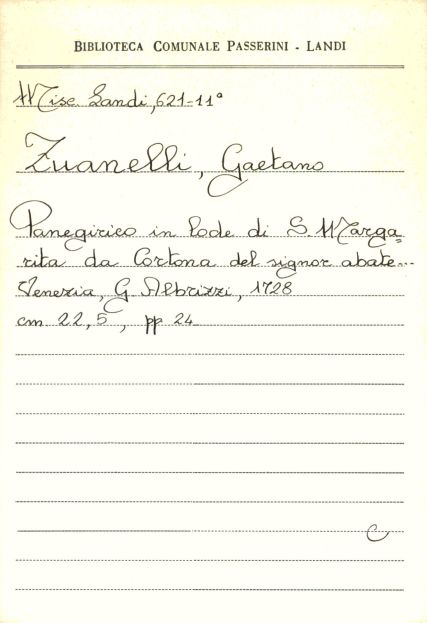 BIBLIOTECA COMUNALE PASSERINI - LANDI
Misc. Landi, 621-11°
Zuanelli, Gaetano
Panegirico in lode di S. Marga=
rita da Cortona del signor abate...
Venezia, G. Albrizzi, 1728
cm 22,5, pp 24
C